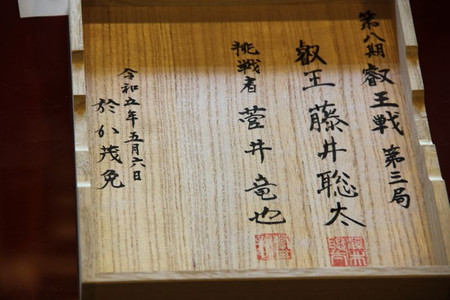 第八期 叡王戦 第三局
叡王 藤井聡太
挑戦者 菅井竜也
令和五年五月六日
於 か茂免